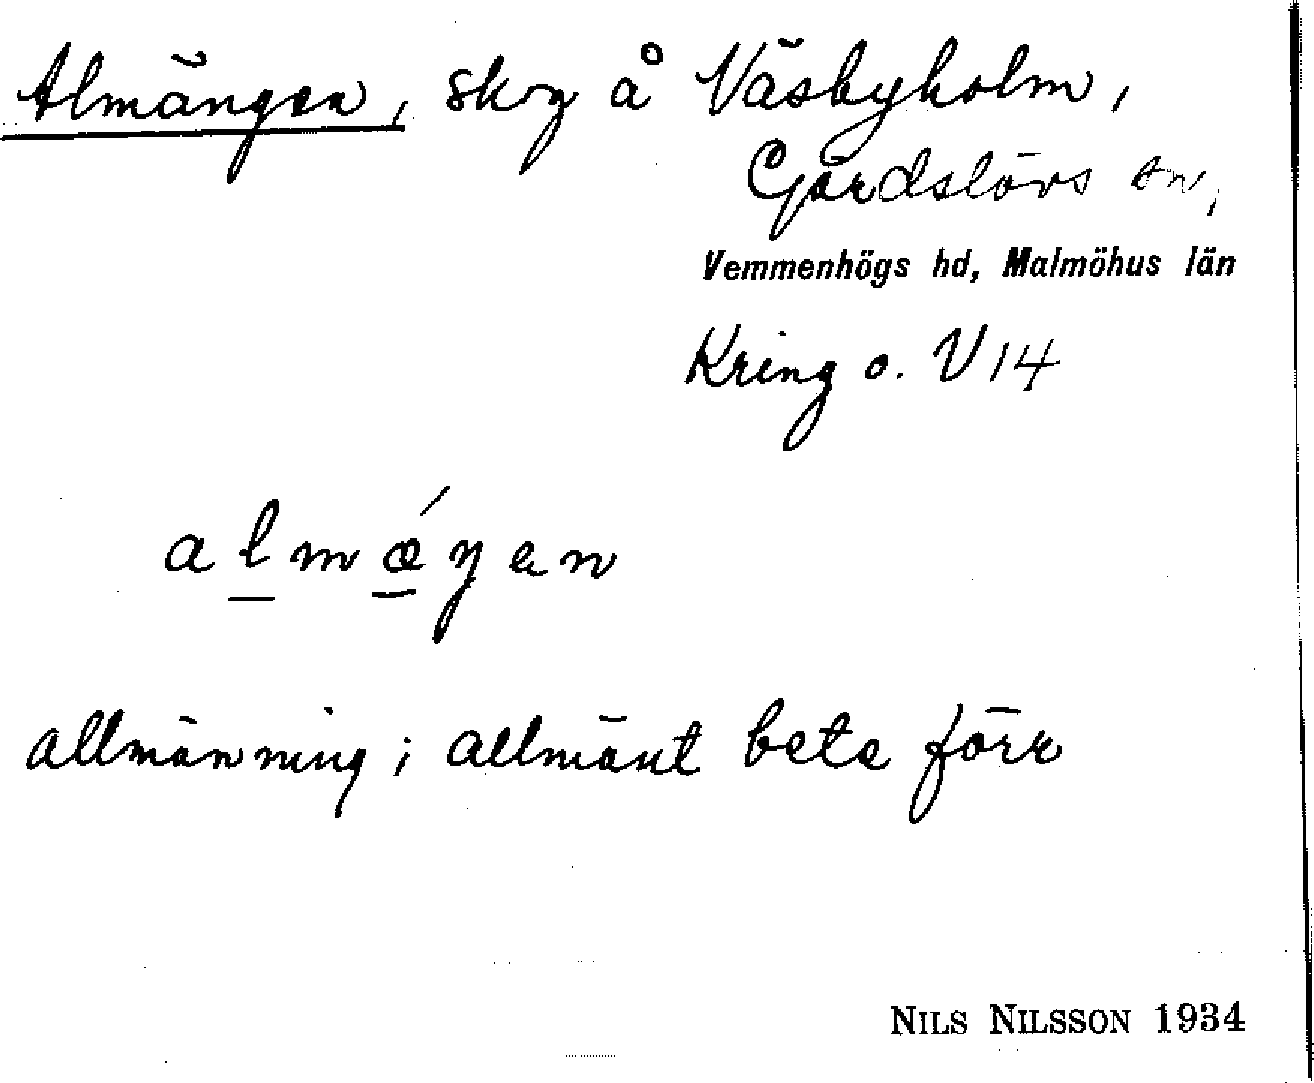 Almängen, skog å Väsbyholm,
Gärdslövs sn,
Vemmenhögs hd, Malmöhus län
Kring o. V 14
almǽŋen
allmänning; allmänt bete förr
NILS NILSSON 1934